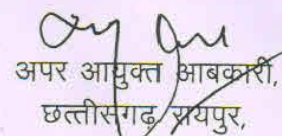 अपर आयुक्त आबकारी,
छत्तीसगढ़, रायपुर,